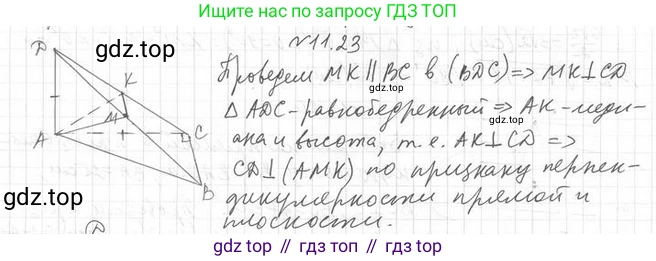 Ищите нас по запросу ГДЗ ТОП
№11.23
D
gdz.top
gdz.top
K
Проведем MK || BC в (BDC) => MK⊥CD
M
△ ADC - равнобедренный => AK - меди-
A
C
ана и высота, т.е. AK⊥CD =>
CD⊥(AMK) по признаку перпен-
gdz.top
B
дикулярности прямой и
плоскости.
gdz.top
gdz.top // гдз.топ // gdz top // гдз топ